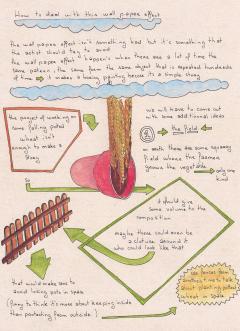 How to deal with this wall paper effect
the wall paper effect isn't something bad but it's something that
the artist should try to avoid
the wall paper effect happen's when there are a lot of time the
same patern, the same form the same object that is repeated hundreds
of time it makes a boaring painting because its a simple story
the project of working on
some falling potted
wheat isn't
enough to make a
story
we will have to come out
with some additional ideas
the field
on earth there are some squary
field where the farmers
grown the vegetable
only one
kind
so
it should give
some volume to the
composition
maybe there could even be
a cloture around it
who could look like that
that would make sens to
avoid losing pots in space
(funny to think it's more about keeping inside
then protecting from outside.)
see fences from
another time to talk
about planting potted
wheat in space